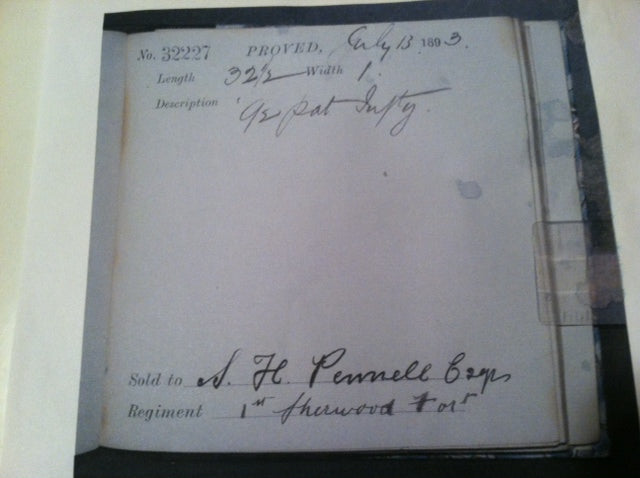 No. 32227 PROVED, July 13 1893.
Length 32 1/2 Width 1.
Description '92 pat Infty.
Sold to S. H. Pennell Esqr
Regiment 1st Sherwood For